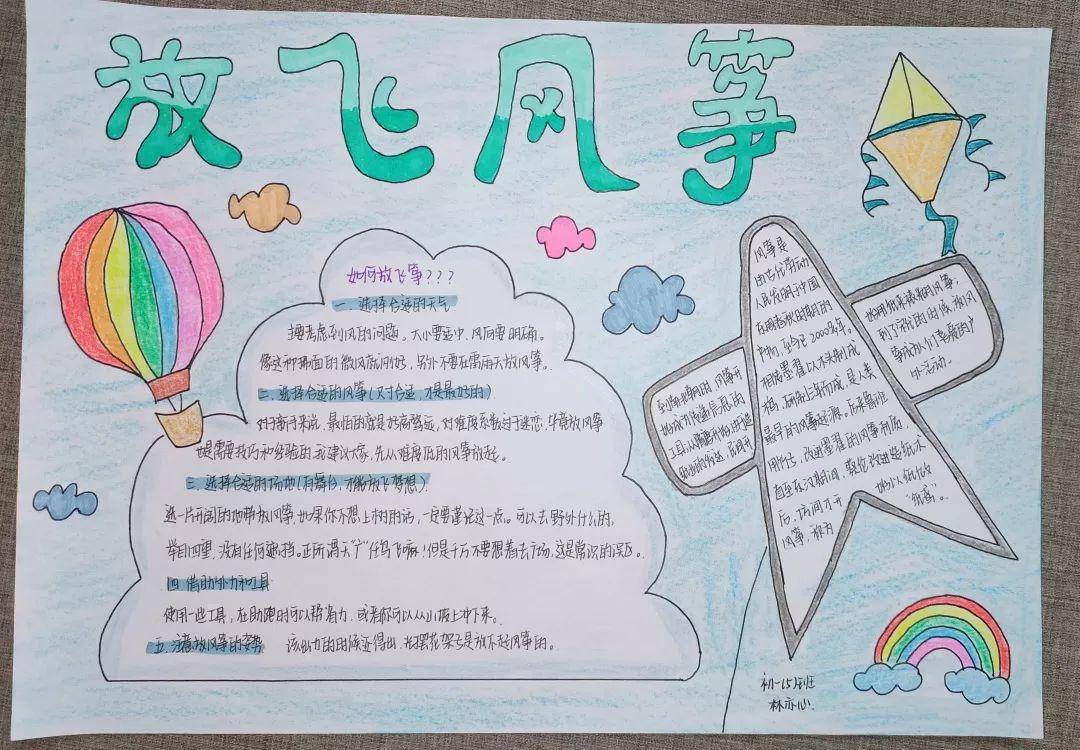 放飞风筝
如何放飞筝???
一、选择合适的天气
主要考虑到风的问题。大小要适中,风向要明确。
像这种拂面的微风就刚好,另外不要在雷雨天放风筝。
二、选择合适的风筝(尺寸合适,才是最好的)
对于新手来说,最怕的就是好高骛远,对难度系数过于迷恋,毕竟放风筝
也是需要技巧和经验的,我建议大家,先从难度低的风筝放起。
三、选择合适的场地(有舞台,才能放飞梦想)
选一片开阔的地带放风筝,如果你不想上树的话,一定要谨记这一点。可以去野外什么的,
举目四望,没有任何遮挡。正所谓天“广”任鸟飞嘛!但是千万不要想着去广场,这是常识的误区。
四、借助外力和工具
使用一些工具,在助跑时可以帮省力,或者你可以从小坡上冲下来。
五、注意放风筝的姿势 该出力的时候还得出,光摆花架子是放不起风筝的。
风筝是
由古代劳动
人民发明于中国
东周春秋时期的
产物,至今已2000多年。
相传墨翟以木头制成
木鸟,研制三年而成,是人类
最早的风筝起源。后来鲁班
用竹子,改进墨翟的风筝材质,
直至东汉期间,蔡伦改进造纸术
后,坊间才开 始以纸做
风筝,称为 “纸鸢”。
到南北朝时,风筝开
始成为传递信息的
工具;从隋唐开始,
到了
的时候,放风
筝成为人们喜爱的户
外活动。
初一15班
林亦心